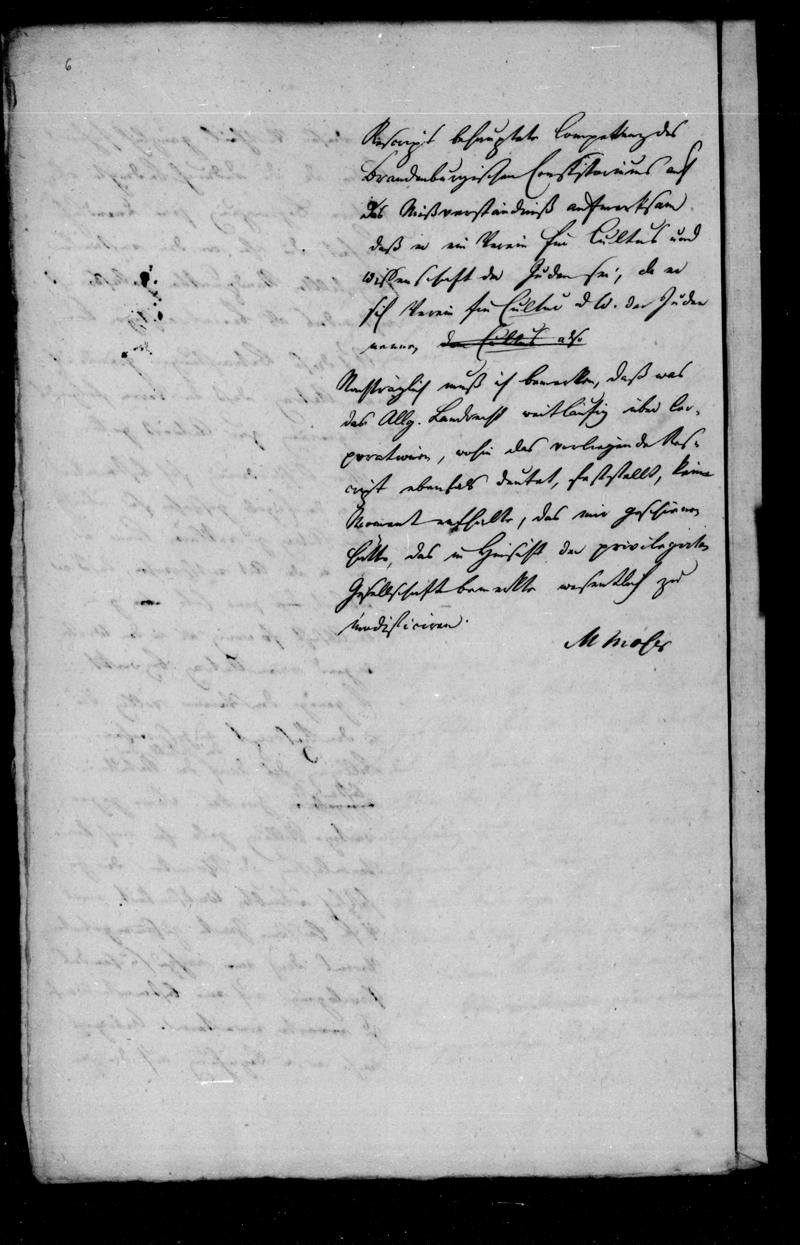 6
Rescript behauptete Competenz des
Brandenburgischen Consistoriums auf
das Mißverständniß aufmerksam
daß er ein Verein für Cultus und
Wissenschaft der Juden sei, da er
sich Verein für Cultur u W. der Juden
nenne,
Nachträglich muß ich bemerken, daß was
das Allg. Landrecht weitläufig über Cor-
porationen, wohin das vorliegende Res-
cript ebenfals deutet, feststellt, keine
Moment enthalte, das mir geschienen
hätte, das in Hinsicht der privilegirten
Gesellschaft bemerkte wesentlich zu
modificiren.
M Moser